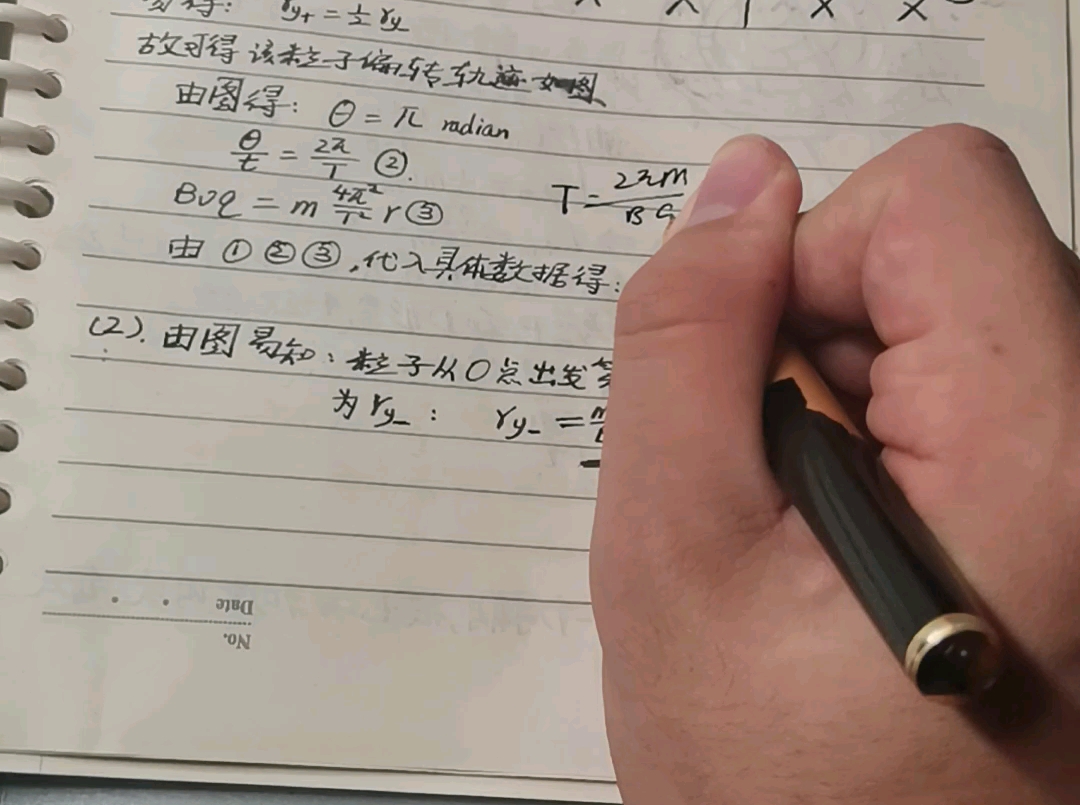 易得: r_y+ = 1/2 r_y-
× × × ×
故可得该粒子偏转轨迹如图
由图得: θ = π radian
θ/t = 2π/T ②.
Bvq = m 4π²/T² r ③
T = 2πm/Bq
由 ① ② ③ ,代入具体数据得:
(2). 由图易知: 粒子从O点出发
为 r_y- : r_y- =
Date
No.